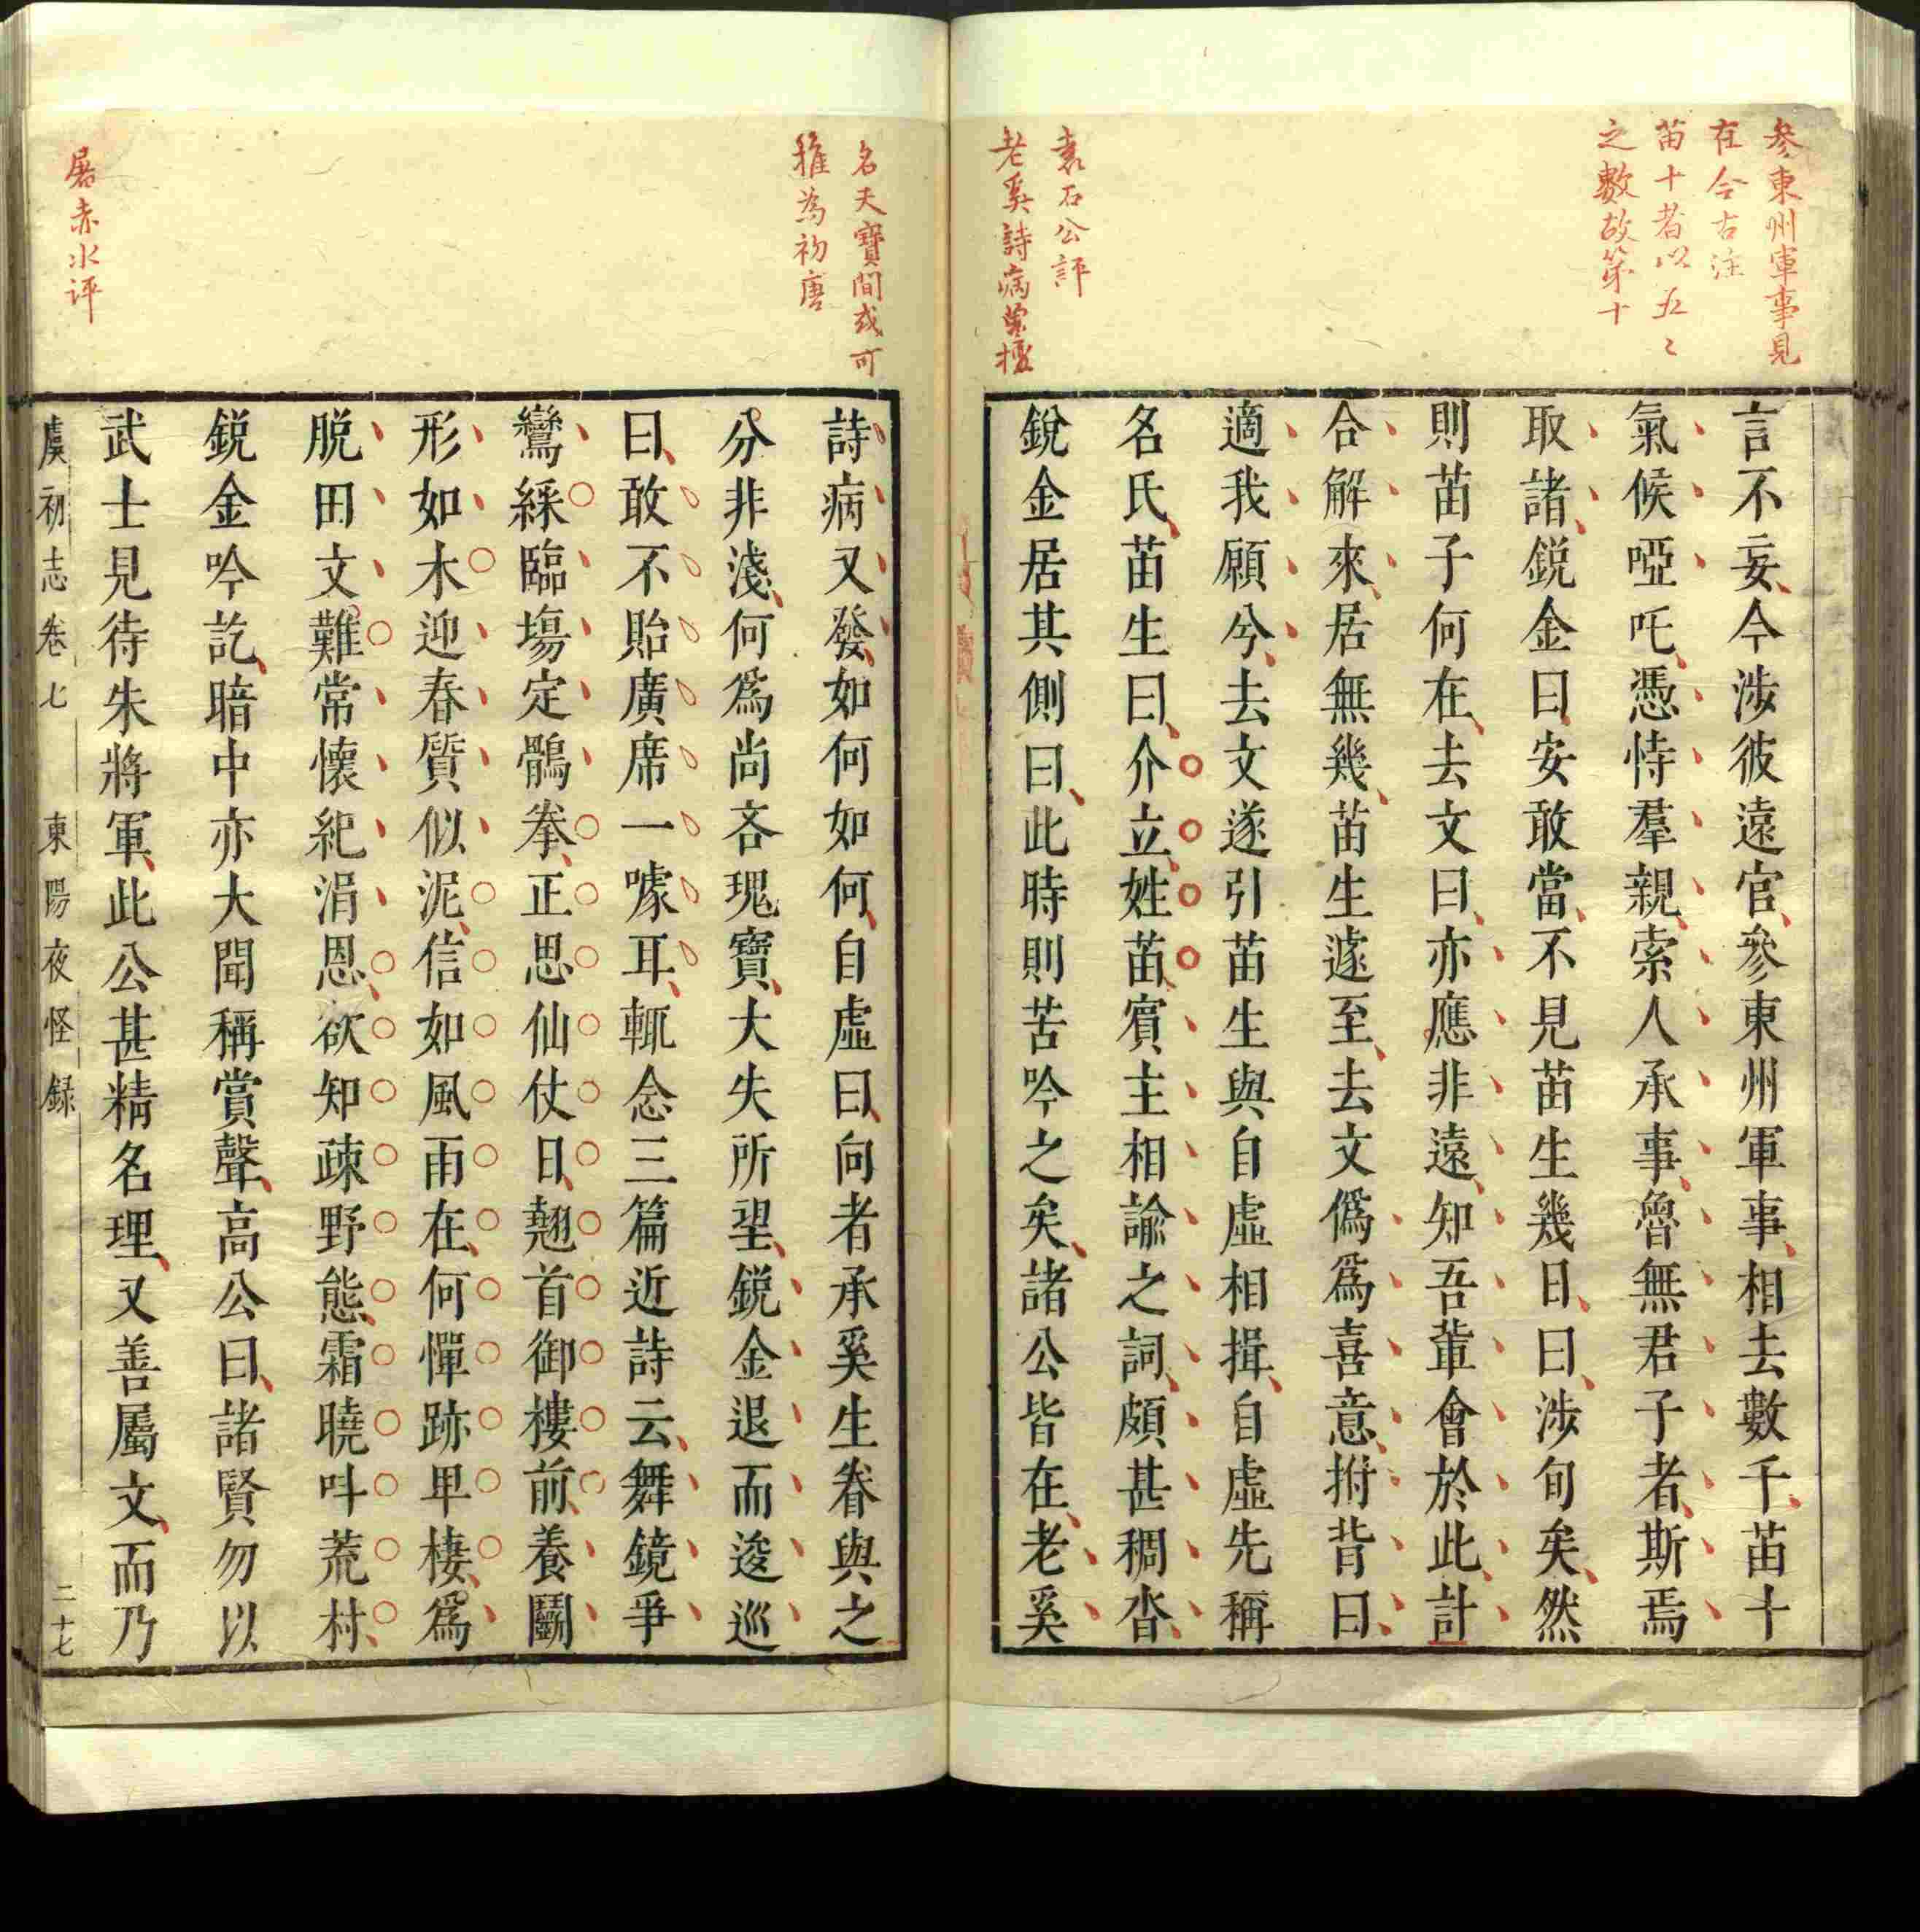 參東州軍事見
在今古注
苗十者以五〻
之數故第十
袁石公評
老奚詩病萌擡
言不妄今涉彼遠官參東州軍事相去數千苗十
氣候啞吒憑恃羣親索人承事魯無君子者斯焉
取諸銳金曰安敢當不見苗生幾日曰涉旬矣然
則苗子何在去文曰亦應非遠知吾輩會於此計
合解來居無幾苗生遽至去文僞爲喜意拊背曰
適我願兮去文遂引苗生與自虛相揖自虛先稱
名氏苗生曰介立姓苗賓主相諭之詞頗甚稠沓
銳金居其側曰此時則苦吟之矣諸公皆在老奚
名天寶間或可
稚為初唐
屠赤水评
詩病又發如何如何自虛曰向者承奚生眷與之
分非淺何爲尚吝瑰寶大失所望銳金退而逡巡
曰敢不貽廣席一噱耳輒念三篇近詩云舞鏡爭
鸞綵臨塲定鶻拳正思仙仗日翹首御樓前養鬬
形如木迎春質似泥信如風雨在何憚跡卑棲爲
脱田文難常懷紀涓恩欲知疎野態霜曉呌荒村
銳金吟訖暗中亦大聞稱賞聲高公曰諸賢勿以
武士見待朱將軍此公甚精名理又善屬文而乃
虞初志卷七 東陽夜怪録 二十七